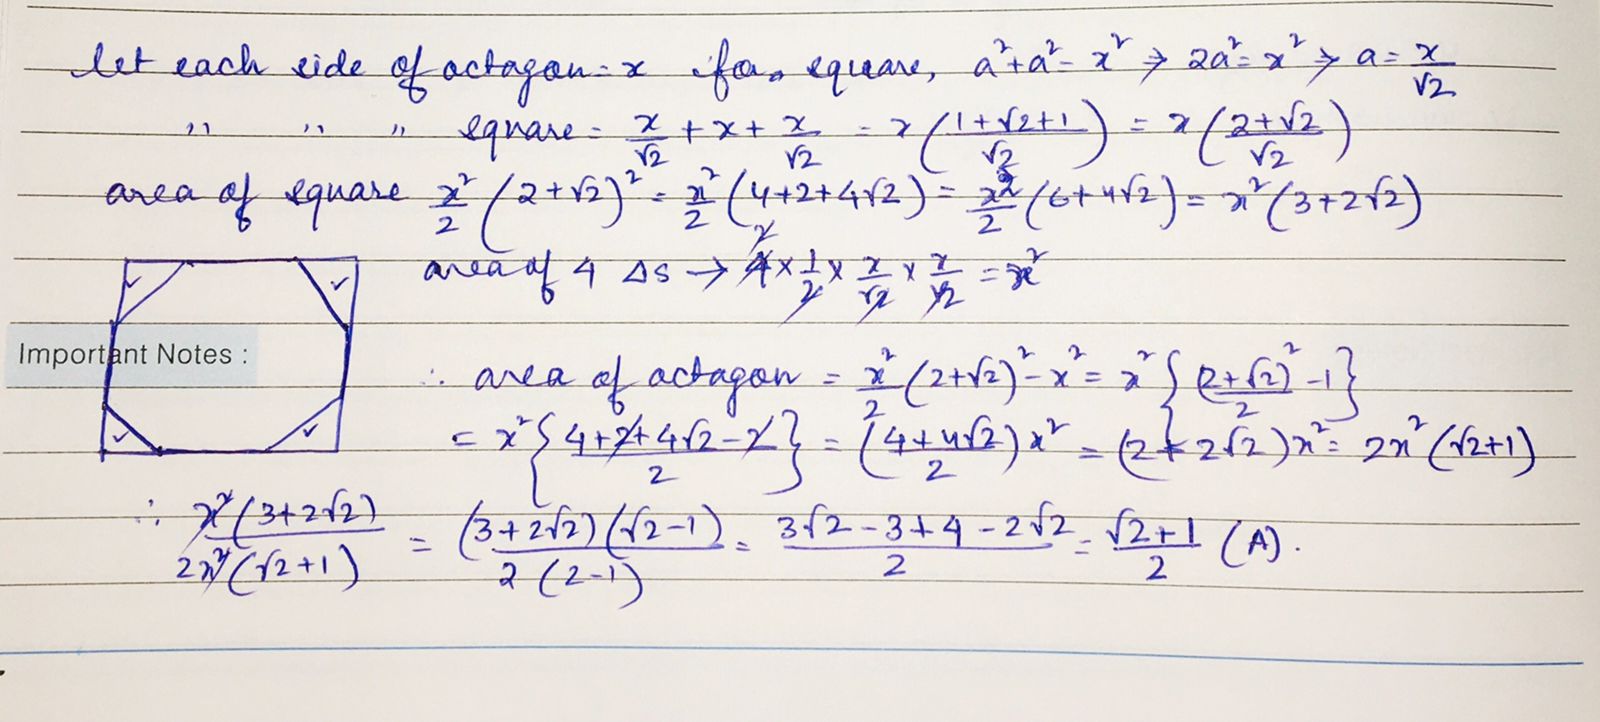 let each side of octagon = x for square, a²+a² = x² → 2a² = x² → a = x/√2
,, ,, ,, square = x/√2 + x + x/√2 = x((1+√2+1)/√2) = x((2+√2)/√2)
area of square x²/2 (2+√2)² = x²/2 (4+2+4√2) = x²/2 (6+4√2) = x²(3+2√2)
area of 4 Δs → 4 × 1/2 × x/√2 × x/√2 = x²
Important Notes :
∴ area of octagon = x²/2 (2+√2)² - x² = x² {(2+√2)²/2 - 1}
= x² {(4+2+4√2-2)/2} = ((4+4√2)/2) x² = (2+2√2)x² = 2x²(√2+1)
∴ x²(3+2√2)/2x²(√2+1) = (3+2√2)(√2-1)/2(2-1) = (3√2-3+4-2√2)/2 = (√2+1)/2 (A).